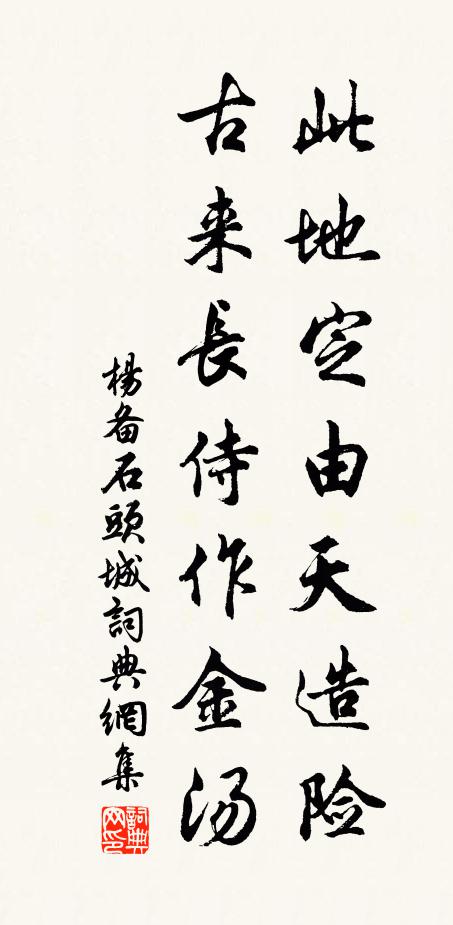 此地定由天造险
古来長侍作金汤
楊备石頭城詞典網集
詞典网印